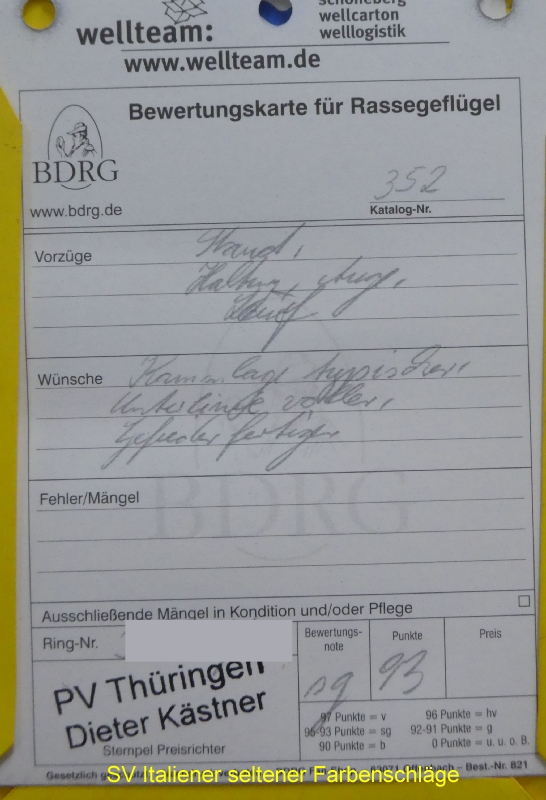 wellteam:
wellcarton
welllogistik
www.wellteam.de
Bewertungskarte für Rassegeflügel
BDRG
www.bdrg.de
352
Katalog-Nr.
Vorzüge
Stand,
Haltung, Aug,
Wünsche
Kammlage typischer,
Unterlinie voller,
Gefieder fertiger
Fehler/Mängel
BDRG
Ausschließende Mängel in Kondition und/oder Pflege
Ring-Nr.
Bewertungs-
note
Punkte
Preis
sg
93
PV Thüringen
Dieter Kästner
Stempel Preisrichter
97 Punkte = v 96 Punkte = hv
95-93 Punkte = sg 92-91 Punkte = g
90 Punkte = b 0 Punkte = u. u. o. B.
Gesetzlich Best.-Nr. 821
SV Italiener seltener Farbenschläge